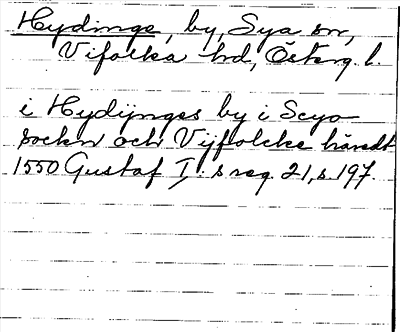 Hydinge, by, Sya sn,
Vifolka hd, Österg. l.
i Hydijnges by i Scya
sockn och Vijfolcke häredt
1550 Gustaf I:s reg. 21, s. 197.